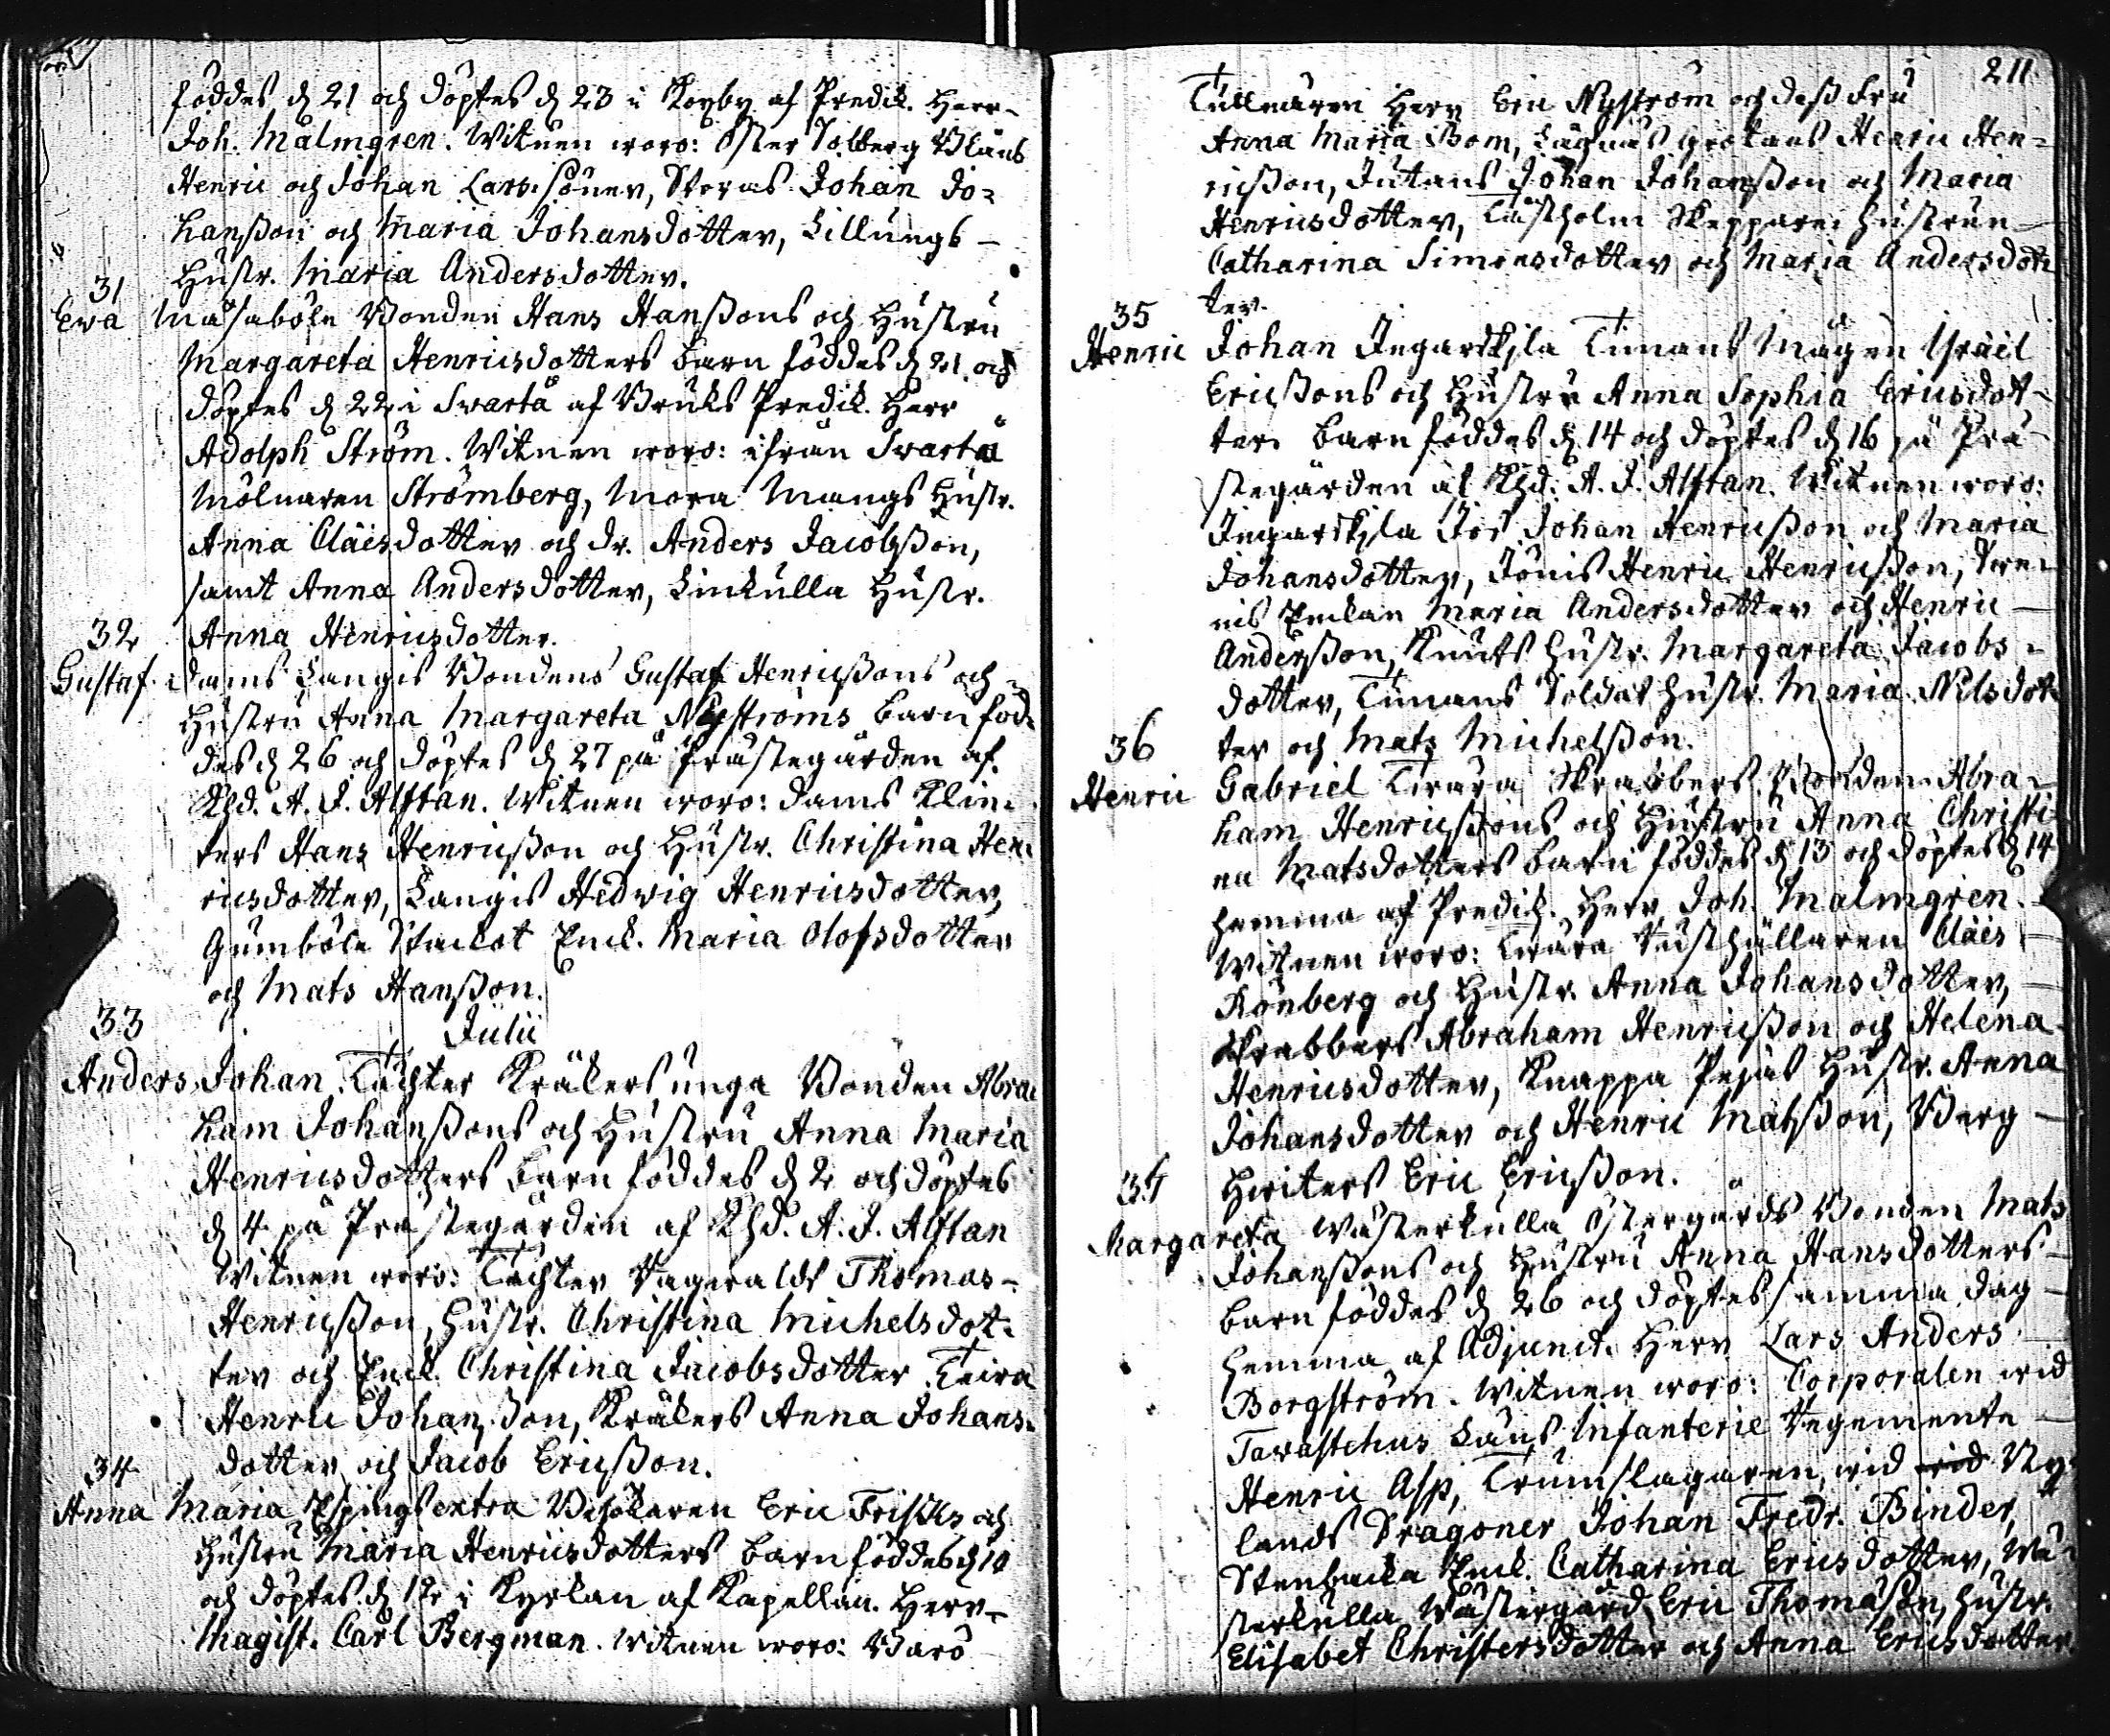 föddes d 21 och döptes d 23 i Køxby af Predik. Herr
Joh. Malmgren. Witnen woro: Öster Solberg Klaus
Henric och Johan Lars. söner, Storas Johan Jo=
hanßon och Maria Johansdotter, Lillungs
Hustr. Maria Andersdotter.
31
Ewa Måsaböle Bonden Hans Hanßons och Hustru
Margareta Henricsdotters barn föddes d 21. och
döptes d 22 i Swartå af Bruks Predik. Herr
Adolph Ström. Witnen woro: ifrån Swartå
Mölnaren Strömberg, Mora Mangs Hustr.
Anna Claësdotter och dr. Anders Jacobßon,
samt Anna Andersdotter, Linkulla Hustr.
Anna Henricsdotter.
32
Gustaf. Dams Langis Bondens Gustaf Henricßons och
Hustru Anna Margareta Nyströms barn föd=
des d 26 och döptes d 27 på Prästegården af
Khd. A. J. Alftan. Witnen woro: Dams Klin=
kers Hans Henricßon och Hustr. Christina Hen=
ricsdotter, Langis Hedwig Henricsdotter,
Gumböle Stackot Enck. Maria Olofsdotter
och Mats Hanßon.
Julii
33
Anders Johan. Täckter Kråkers unga Bonden Abra=
ham Johanßons och Hustru Anna Maria
Henricsdotters barn föddes d 2 och döptes
d 4 på Prästegården af Khd. A. J. Alftan
Witnen woro: Täckter Ragwalds Thomas
Henricßon, Hustr. Christina Michelsdot=
ter och Enck. Christina Jacobsdotter Keira
Henric Johanßon, Kråkers Anna Johans=
dotter och Jacob Ericßon.
34
Anna Maria Espings extra Besökaren Eric Frisks och
Hustru Maria Henricsdotters barn föddes d 10
och döptes d 12 i Kyrkan af Kapellan. Herr
Magist. Carl Bergman. Witnen woro: Barö
211.
Tullnären Herr Eric Nyström och deß Fru
Anna Maria Bom, Lägnäs Grotans Henric Hen=
ricßon, Jutans Johan Johanßon och Maria
Henricsdotter, Låstholm Skepparen hustrun
Catharina Simonsdotter och Maria Andersdot
ter.
35
Henric Johan Ingarskila Timans Mågen Israël
Ericßons och Hustru Anna Sophia Ericsdot=
ters barn föddes d 14 och döptes d 16 på Prä=
stegården af Khd. A. J. Alftan. Witnen woro:
Ingarskila Jos Johan Henricßon och Maria
Johansdotter, Jönis Henric Henricßon, Sve=
nis Enckan Maria Andersdotter och Henric
Anderßon, Knuts Hustr. Margareta Jacobs=
dotter, Timans Soldat hustr. Maria Nilsdot
ter och Mats Michelßon.
36
Henric Gabriel Kwara Skrabbers Bonden Abra=
ham Henricßons och Hustru Anna Christi
na Matsdotters barn föddes d 13 och döptes d 14
hemma af Predik. Herr Joh. Malmgren.
Witnen woro: Kwara Rusthållaren Claës
Rönberg och Hustr. Anna Johansdotter,
Skrabbers Abraham Henricßon och Helena
Henricsdotter, Knappa Pejas Hustr. Anna
Johansdotter och Henric Matsßon, Berg
Hwiters Eric Ericßon.
37
Margareta Wästerkulla Östergårds Bonden Mats
Johanßons och Hustru Anna Hansdotters
barn föddes d 26 och döptes samma dag
hemma af Adjunct. Herr Lars Anders
Borgström. Witnen woro: Corporalen wid
Tawastehus Läns Infanterie Regemente
Henric Asp, Trumslagaren wid wid Ny=
lands Dragoner Johan Fredr. Binder,
Stenbacka Enck. Catharina Ericsdotter, Wä=
sterkulla Wästergård Eric Thomasßon, Hustr.
Elisabet Christersdotter och Anna Ericsdotter